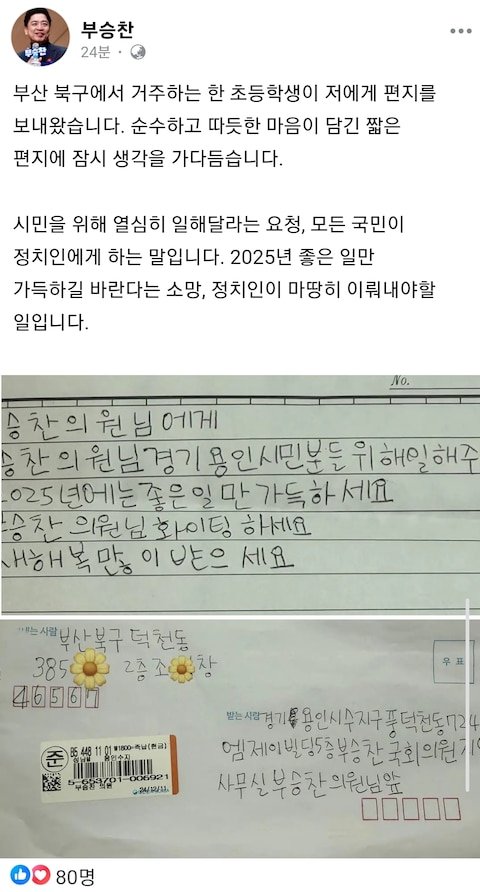 부승찬
24분 ·
부산 북구에서 거주하는 한 초등학생이 저에게 편지를
보내왔습니다. 순수하고 따듯한 마음이 담긴 짧은
편지에 잠시 생각을 가다듬습니다.
시민을 위해 열심히 일해달라는 요청, 모든 국민이
정치인에게 하는 말입니다. 2025년 좋은 일만
가득하길 바란다는 소망, 정치인이 마땅히 이뤄내야할
일입니다.
No.
승찬의원님에게
승찬의원님경기용인시민분들위해일해주
2025년에는좋은일만가득하세요
승찬 의원님 화이팅 하세요
새해복많이 받으세요
내는 사람 부산북구 덕천동
385 2층 조 창
46567
우 표
받는 사람 경기 용인시수지구풍덕천동724
엠제이빌딩5층부승찬 국회의원
사무실 부승찬의원님앞
준
₩1800-즉납(현금)
용인수지
부승찬 의원
24/12/11
80명